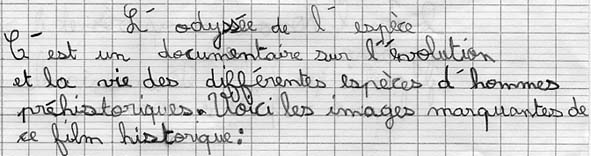 L'odyssée de l'espèce
C'est un documentaire sur l'évolution
et la vie des différentes espèces d'hommes
préhistoriques. Voici les images marquantes de
ce film historique: